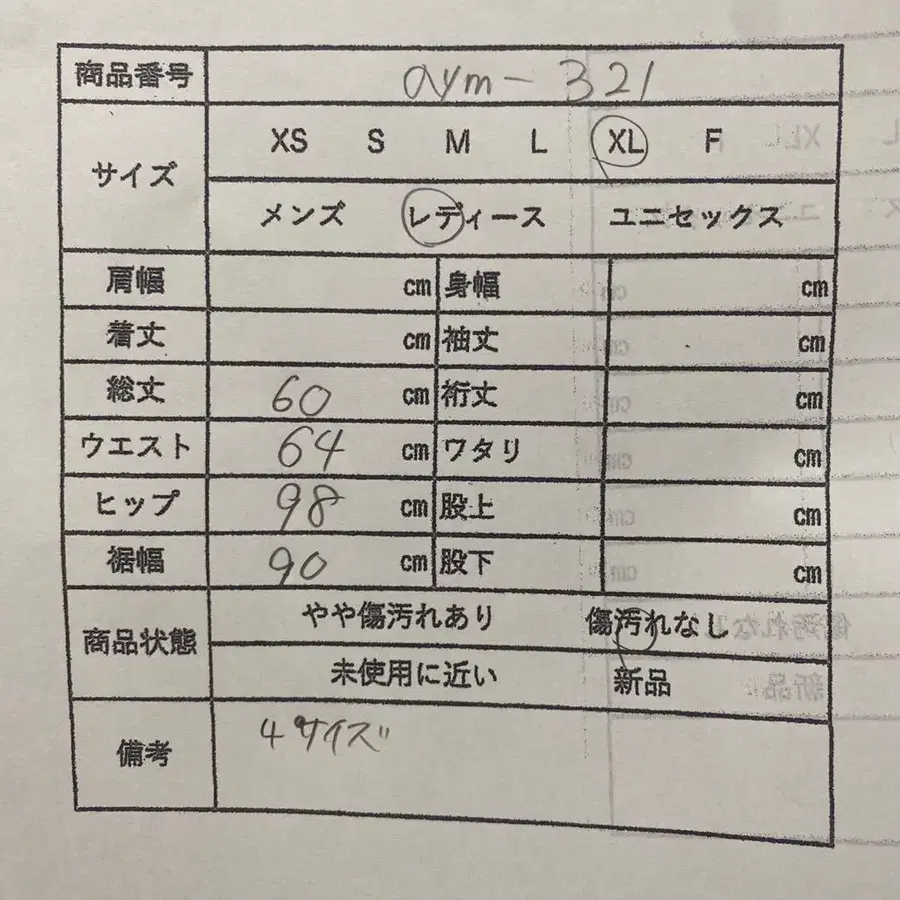 商品番号 aym-321
サイズ XS S M L XL F
メンズ レディース ユニセックス
肩幅 cm 身幅 cm
着丈 cm 袖丈 cm
総丈 60 cm 裄丈 cm
ウエスト 64 cm ワタリ cm
ヒップ 98 cm 股上 cm
裾幅 90 cm 股下 cm
商品状態 やや傷汚れあり 傷汚れなし
未使用に近い 新品
備考 4サイズ